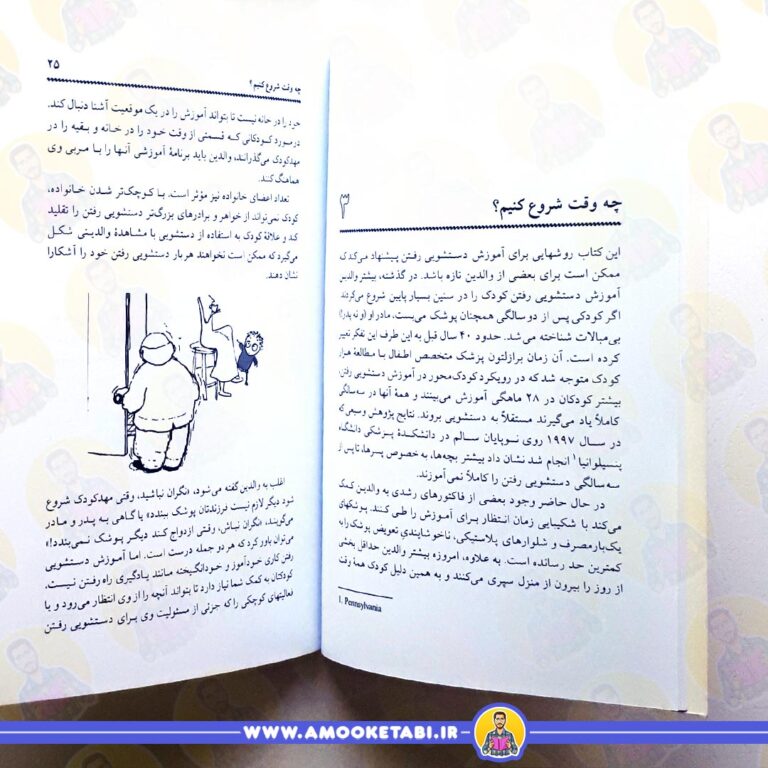 چه وقت شروع کنیم؟
۳
این کتاب روشهایی برای آموزش دستشویی رفتن پیشنهاد می‌کند که
ممکن است برای بعضی از والدین تازه باشد. در گذشته، بیشتر والدین
آموزش دستشویی رفتن کودک را در سنین بسیار پایین شروع می‌کردند.
اگر کودکی پس از دو سالگی همچنان پوشک می‌بست، مادر او (و نه پدر!)
بی‌مبالات شناخته می‌شد. حدود ۴۰ سال قبل به این طرف این تفکر تغییر
کرده است. آن زمان برازلتون پزشک متخصص اطفال با مطالعهٔ هزار
کودک متوجه شد که در رویکرد کودک‌محور در آموزش دستشویی رفتن،
بیشتر کودکان در ۲۸ ماهگی آموزش می‌بینند و همهٔ آنها در سه‌سالگی
کاملاً یاد می‌گیرند مستقلاً به دستشویی بروند. نتایج پژوهش وسیعی که
در سال ۱۹۹۷ روی نوپایان سالم در دانشکدهٔ پزشکی دانشگاه
پنسیلوانیا۱ انجام شد نشان داد بیشتر بچه‌ها، به خصوص پسرها، تا پس از
سه سالگی دستشویی رفتن را کاملاً نمی‌آموزند.
در حال حاضر وجود بعضی از فاکتورهای رشدی به والدین کمک
می‌کند با شکیبایی زمان انتظار برای آموزش را طی کنند. پوشکهای
یک‌بارمصرف و شلوارهای پلاستیکی، ناخوشایندیِ تعویض پوشک را به
کمترین حد رسانده است. به علاوه، امروزه بیشتر والدین حداقل بخشی
از روز را بیرون از منزل سپری می‌کنند و به همین دلیل کودک همهٔ وقت
1. Pennsylvania
چه وقت شروع کنیم؟ ۲۵
خود را در خانه نیست تا بتواند آموزش را در یک موقعیت آشنا دنبال کند.
در مورد کودکانی که قسمتی از وقت خود را در خانه و بقیه را در
مهدکودک می‌گذرانند، والدین باید برنامهٔ آموزشی آنها را با مربی وی
هماهنگ کنند.
تعداد اعضای خانواده نیز مؤثر است. با کوچک‌تر شدن خانواده،
کودک نمی‌تواند از خواهر و برادرهای بزرگ‌تر دستشویی رفتن را تقلید
کند و علاقهٔ کودک به استفاده از دستشویی با مشاهدهٔ والدینی شکل
می‌گیرد که ممکن است نخواهند هر بار دستشویی رفتن خود را آشکارا
نشان دهند.
اغلب به والدین گفته می‌شود، «نگران نباشید، وقتی مهدکودک شروع
شود دیگر لازم نیست فرزندتان پوشک ببندد» یا گاهی به پدر و مادر
می‌گویند، «نگران نباش، وقتی ازدواج کند دیگر پوشک نمی‌بندد!»
می‌توان باور کرد که هر دو جمله درست است. اما آموزش دستشویی
رفتن کاری خودآموز و خودانگیخته مانند یادگیری راه رفتن نیست.
کودکتان به کمک شما نیاز دارد تا بتواند آنچه را از وی انتظار می‌رود و یا
فعالیتهای کوچکی را که جزئی از مسئولیت وی برای دستشویی رفتن
WWW.AMOOKETABI.IR